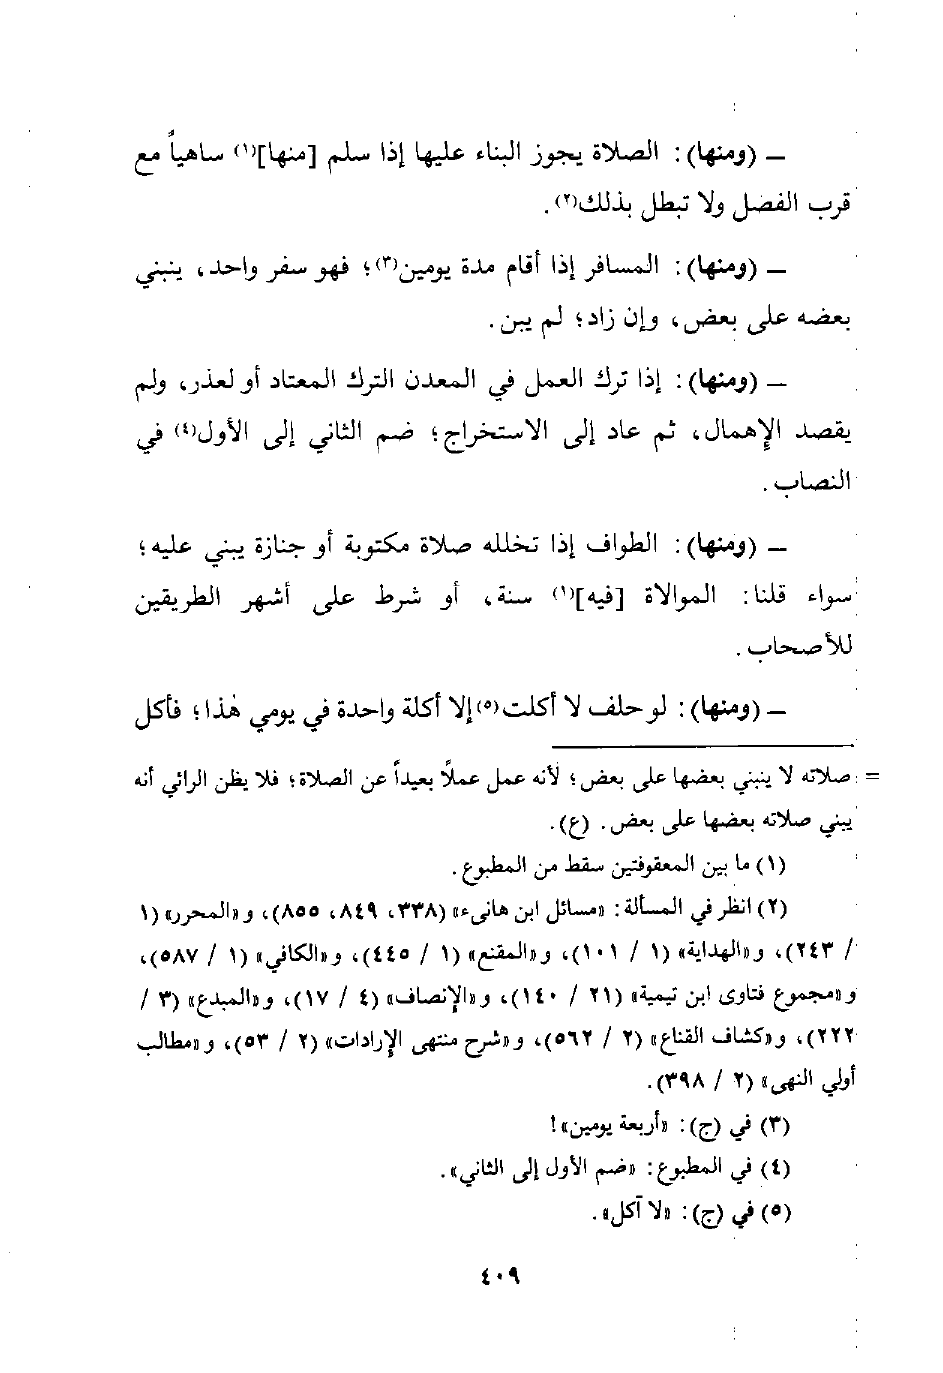 ـ (ومنها): الصلاة يجوز البناء عليها إذا سلم [منها](١) ساهياً مع
قرب الفصل ولا تبطل بذلك(٢).
ـ (ومنها): المسافر إذا أقام مدة يومين(٣)؛ فهو سفر واحد، ينبني
بعضه على بعض، وإن زاد؛ لم يبن.
ـ (ومنها): إذا ترك العمل في المعدن الترك المعتاد أو لعذر، ولم
يقصد الإهمال، ثم عاد إلى الاستخراج؛ ضم الثاني إلى الأول(٤) في
النصاب.
ـ (ومنها): الطواف إذا تخلله صلاة مكتوبة أو جنازة يبني عليه؛
سواء قلنا: الموالاة [فيه](١) سنة، أو شرط على أشهر الطريقين
للأصحاب.
ـ (ومنها): لو حلف لا أكلت(٥) إلا أكلة واحدة في يومي هٰذا؛ فأكل
= صلاته لا ينبني بعضها على بعض؛ لأنه عمل عملاً بعيداً عن الصلاة؛ فلا يظن الرائي أنه
يبني صلاته بعضها على بعض. (ع).
(١) ما بين المعقوفتين سقط من المطبوع.
(٢) انظر في المسألة: «مسائل ابن هانىء» (٣٣٨، ٨٤٩، ٨٥٥)، و«المحرر» (١
/ ٢٤٣)، و«الهداية» (١ / ١٠١)، و«المقنع» (١ / ٤٤٥)، و«الكافي» (١ / ٥٨٧)،
و«مجموع فتاوى ابن تيمية» (٢١ / ١٤٠)، و«الإنصاف» (٤ / ١٧)، و«المبدع» (٣ /
٢٢٢)، و«كشاف القناع» (٢ / ٥٦٢)، و«شرح منتهى الإرادات» (٢ / ٥٣)، و«مطالب
أولي النهى» (٢ / ٣٩٨).
(٣) في (ج): «أربعة يومين»!
(٤) في المطبوع: «ضم الأول إلى الثاني».
(٥) في (ج): «لا آكل».
٤٠٩